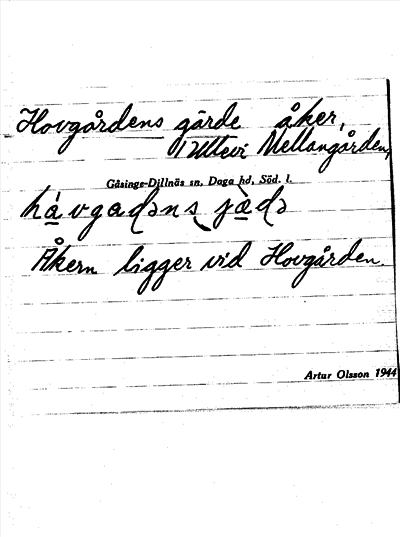 Hovgårdens gärde åker,
Ullevi Mellangården,
Gåsinge-Dillnäs sn, Daga hd, Söd. l.
hávgadəns jàdə
Åkern ligger vid Hovgården.
Artur Olsson 1944